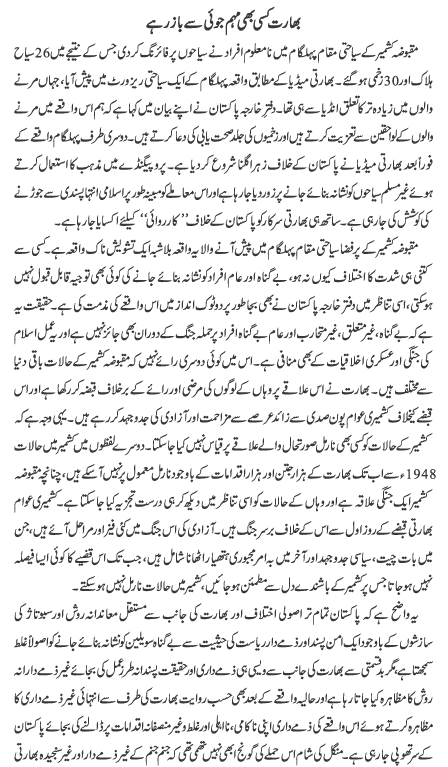 بھارت کسی بھی مہم جوئی سے باز رہے
مقبوضہ کشمیر کے سیاحتی مقام پہلگام میں نا معلوم افراد نے سیاحوں پر فائرنگ کر دی جس کے نتیجے میں 26 سیاح
ہلاک اور 30 زخمی ہو گئے۔ بھارتی میڈیا کے مطابق واقعہ پہلگام کے ایک سیاحتی ریزورٹ میں پیش آیا، جہاں مرنے
والوں میں زیادہ تر کا تعلق انڈیا سے ہی تھا۔ دفتر خارجہ پاکستان نے اپنے بیان میں کہا ہے کہ ہم اس واقعے میں مرنے
والوں کے لواحقین سے تعزیت کرتے ہیں اور زخمیوں کی جلد صحت یابی کی دعا کرتے ہیں۔ دوسری طرف پہلگام واقعے کے
فوراً بعد بھارتی میڈیا نے پاکستان کے خلاف زہر اگلنا شروع کر دیا ہے۔ پروپیگنڈے میں مذہب کا استعمال کرتے
ہوئے غیر مسلم سیاحوں کو نشانہ بنائے جانے پر زور دیا جا رہا ہے اور اس معاملے کو مبینہ طور پر اسلامی انتہا پسندی سے جوڑنے
کی کوشش کی جا رہی ہے۔ ساتھ ہی بھارتی سرکار کو پاکستان کے خلاف ’’کارروائی‘‘ کیلئے اکسایا جا رہا ہے۔
مقبوضہ کشمیر کے پر فضا سیاحتی مقام پہلگام میں پیش آنے والا یہ واقعہ بلاشبہ ایک تشویش ناک واقعہ ہے۔ کسی سے
کتنی ہی شدت کا اختلاف کیوں نہ ہو، بے گناہ اور عام افراد کو نشانہ بنائے جانے کی کوئی بھی توجیہ قابل قبول نہیں
ہو سکتی، اسی تناظر میں دفتر خارجہ پاکستان نے بھی بجا طور پر دوٹوک انداز میں اس واقعے کی مذمت کی ہے۔ حقیقت یہ
ہے کہ بے گناہ، غیر متعلق، غیر متحارب اور عام بے گناہ افراد پر حملہ جنگ کے دوران بھی جائز نہیں ہے اور یہ عمل اسلام
کی جنگی اور عسکری اخلاقیات کے بھی منافی ہے۔ اس میں کوئی دوسری رائے نہیں کہ مقبوضہ کشمیر کے حالات باقی دنیا
سے مختلف ہیں۔ بھارت نے اس علاقے پر وہاں کے لوگوں کی مرضی اور رائے کے برخلاف قبضہ کر رکھا ہے اور اس
قبضے کیخلاف کشمیری عوام پون صدی سے زائد عرصے سے مزاحمت اور آزادی کی جدوجہد کر رہے ہیں۔ یہی وجہ ہے کہ
کشمیر کے حالات کو کسی بھی نارمل صورتحال والے علاقے پر قیاس نہیں کیا جا سکتا۔ دوسرے لفظوں میں کشمیر میں حالات
1948ء سے اب تک بھارت کے ہزار جتن اور ہزار اقدامات کے باوجود نارمل معمول پر نہیں آ سکے ہیں، چنانچہ مقبوضہ
کشمیر ایک جنگی علاقہ ہے اور وہاں کے حالات کو اسی تناظر میں دیکھ کر ہی درست تجزیہ کیا جا سکتا ہے۔ کشمیری عوام
بھارتی قبضے کے روز اول سے اس کے خلاف برسر جنگ ہیں۔ آزادی کی اس جنگ میں کئی فیز اور مراحل آئے ہیں، جن
میں بات چیت، سیاسی جدوجہد اور آخر میں بہ امر مجبوری ہتھیار اٹھانا شامل ہیں، جب تک اس قضیے کا کوئی ایسا فیصلہ
نہیں ہو جاتا جس پر کشمیر کے باشندے دل سے مطمئن ہو جائیں، کشمیر میں حالات نارمل نہیں ہو سکتے۔
یہ واضح ہے کہ پاکستان تمام تر اصولی اختلاف اور بھارت کی جانب سے مستقل معاندانہ روش اور سبوتاژ کی
سازشوں کے باوجود ایک امن پسند اور ذمے دار ریاست کی حیثیت سے بے گناہ سویلین کو نشانہ بنائے جانے کو اصولاً غلط
سمجھتا ہے، مگر بدقسمتی سے بھارت کی جانب سے ویسی ہی ذمے داری اور حقیقت پسندانہ طرز عمل کی بجائے غیر ذمے دارانہ
روش کا مظاہرہ کیا جاتا رہا ہے اور حالیہ واقعے کے بعد بھی حسب روایت بھارت کی طرف سے انتہائی غیر ذمے داری کا
مظاہرہ کرتے ہوئے اس واقعے کی ذمے داری اپنی ناکامی، نااہلی اور غلط و غیر منصفانہ اقدامات پر ڈالنے کی بجائے پاکستان
کے سر تھوپی جا رہی ہے۔ منگل کی شام اس حملے کی گونج ابھی نہیں تھمی تھی کہ جنم جنم کے غیر ذمے دار اور غیر سنجیدہ بھارتی